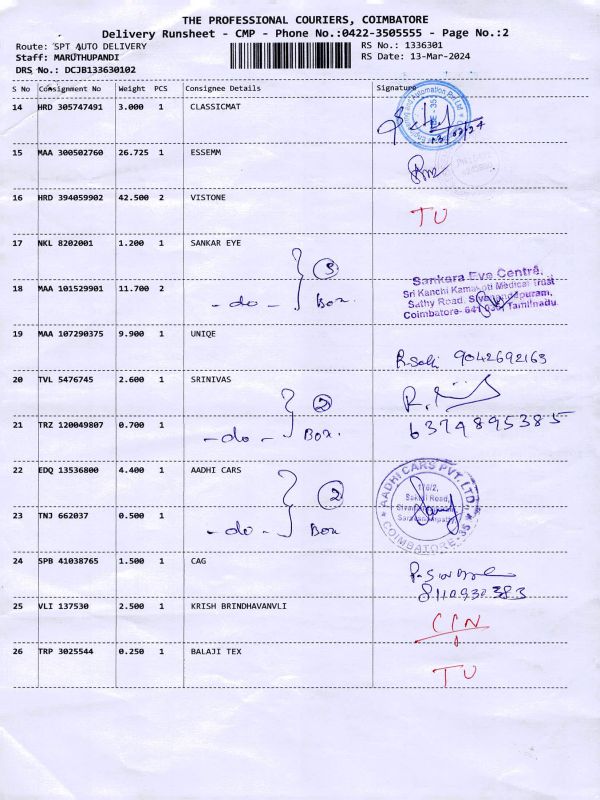 THE PROFESSIONAL COURIERS, COIMBATORE
Delivery Runsheet - CMP - Phone No.:0422-3505555 - Page No.:2
Route: SPT AUTO DELIVERY
RS No.: 1336301
Staff: MARUTHUPANDI
RS Date: 13-Mar-2024
DRS No.: DCJB133630102
S No Consignment No Weight PCS Consignee Details Signature
14 HRD 305747491 3.000 1 CLASSICMAT
13/03/24
15 MAA 300502760 26.725 1 ESSEMM
16 HRD 394059902 42.500 2 VISTONE TU
17 NKL 8202001 1.200 1 SANKAR EYE
3
18 MAA 101529901 11.700 2 -do- Box.
Sankara Eye Centre,
Sri Kanchi Kamakoti Medical Trust
Sathy Road, Sivanandapuram,
Coimbatore- 641 035, Tamilnadu.
19 MAA 107290375 9.900 1 UNIQE
9042692163
20 TVL 5476745 2.600 1 SRINIVAS
2
21 TRZ 120049807 0.700 1 -do- Box.
6374895385
22 EDQ 13536800 4.400 1 AADHI CARS
2
AADHI CARS PVT. LTD.,
COIMBATORE-35
23 TNJ 662037 0.500 1 -do- Box
24 SPB 41038765 1.500 1 CAG
8110930383
25 VLI 137530 2.500 1 KRISH BRINDHAVANVLI
26 TRP 3025544 0.250 1 BALAJI TEX
TU